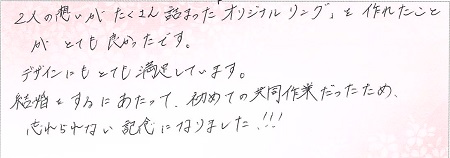 2人の想いがたくさん詰まったオリジナルリングを作れたこと
がとても良かったです。
デザインにもとても満足しています。
結婚をするにあたって、初めての共同作業だったため、
忘れられない記念になりました!!!